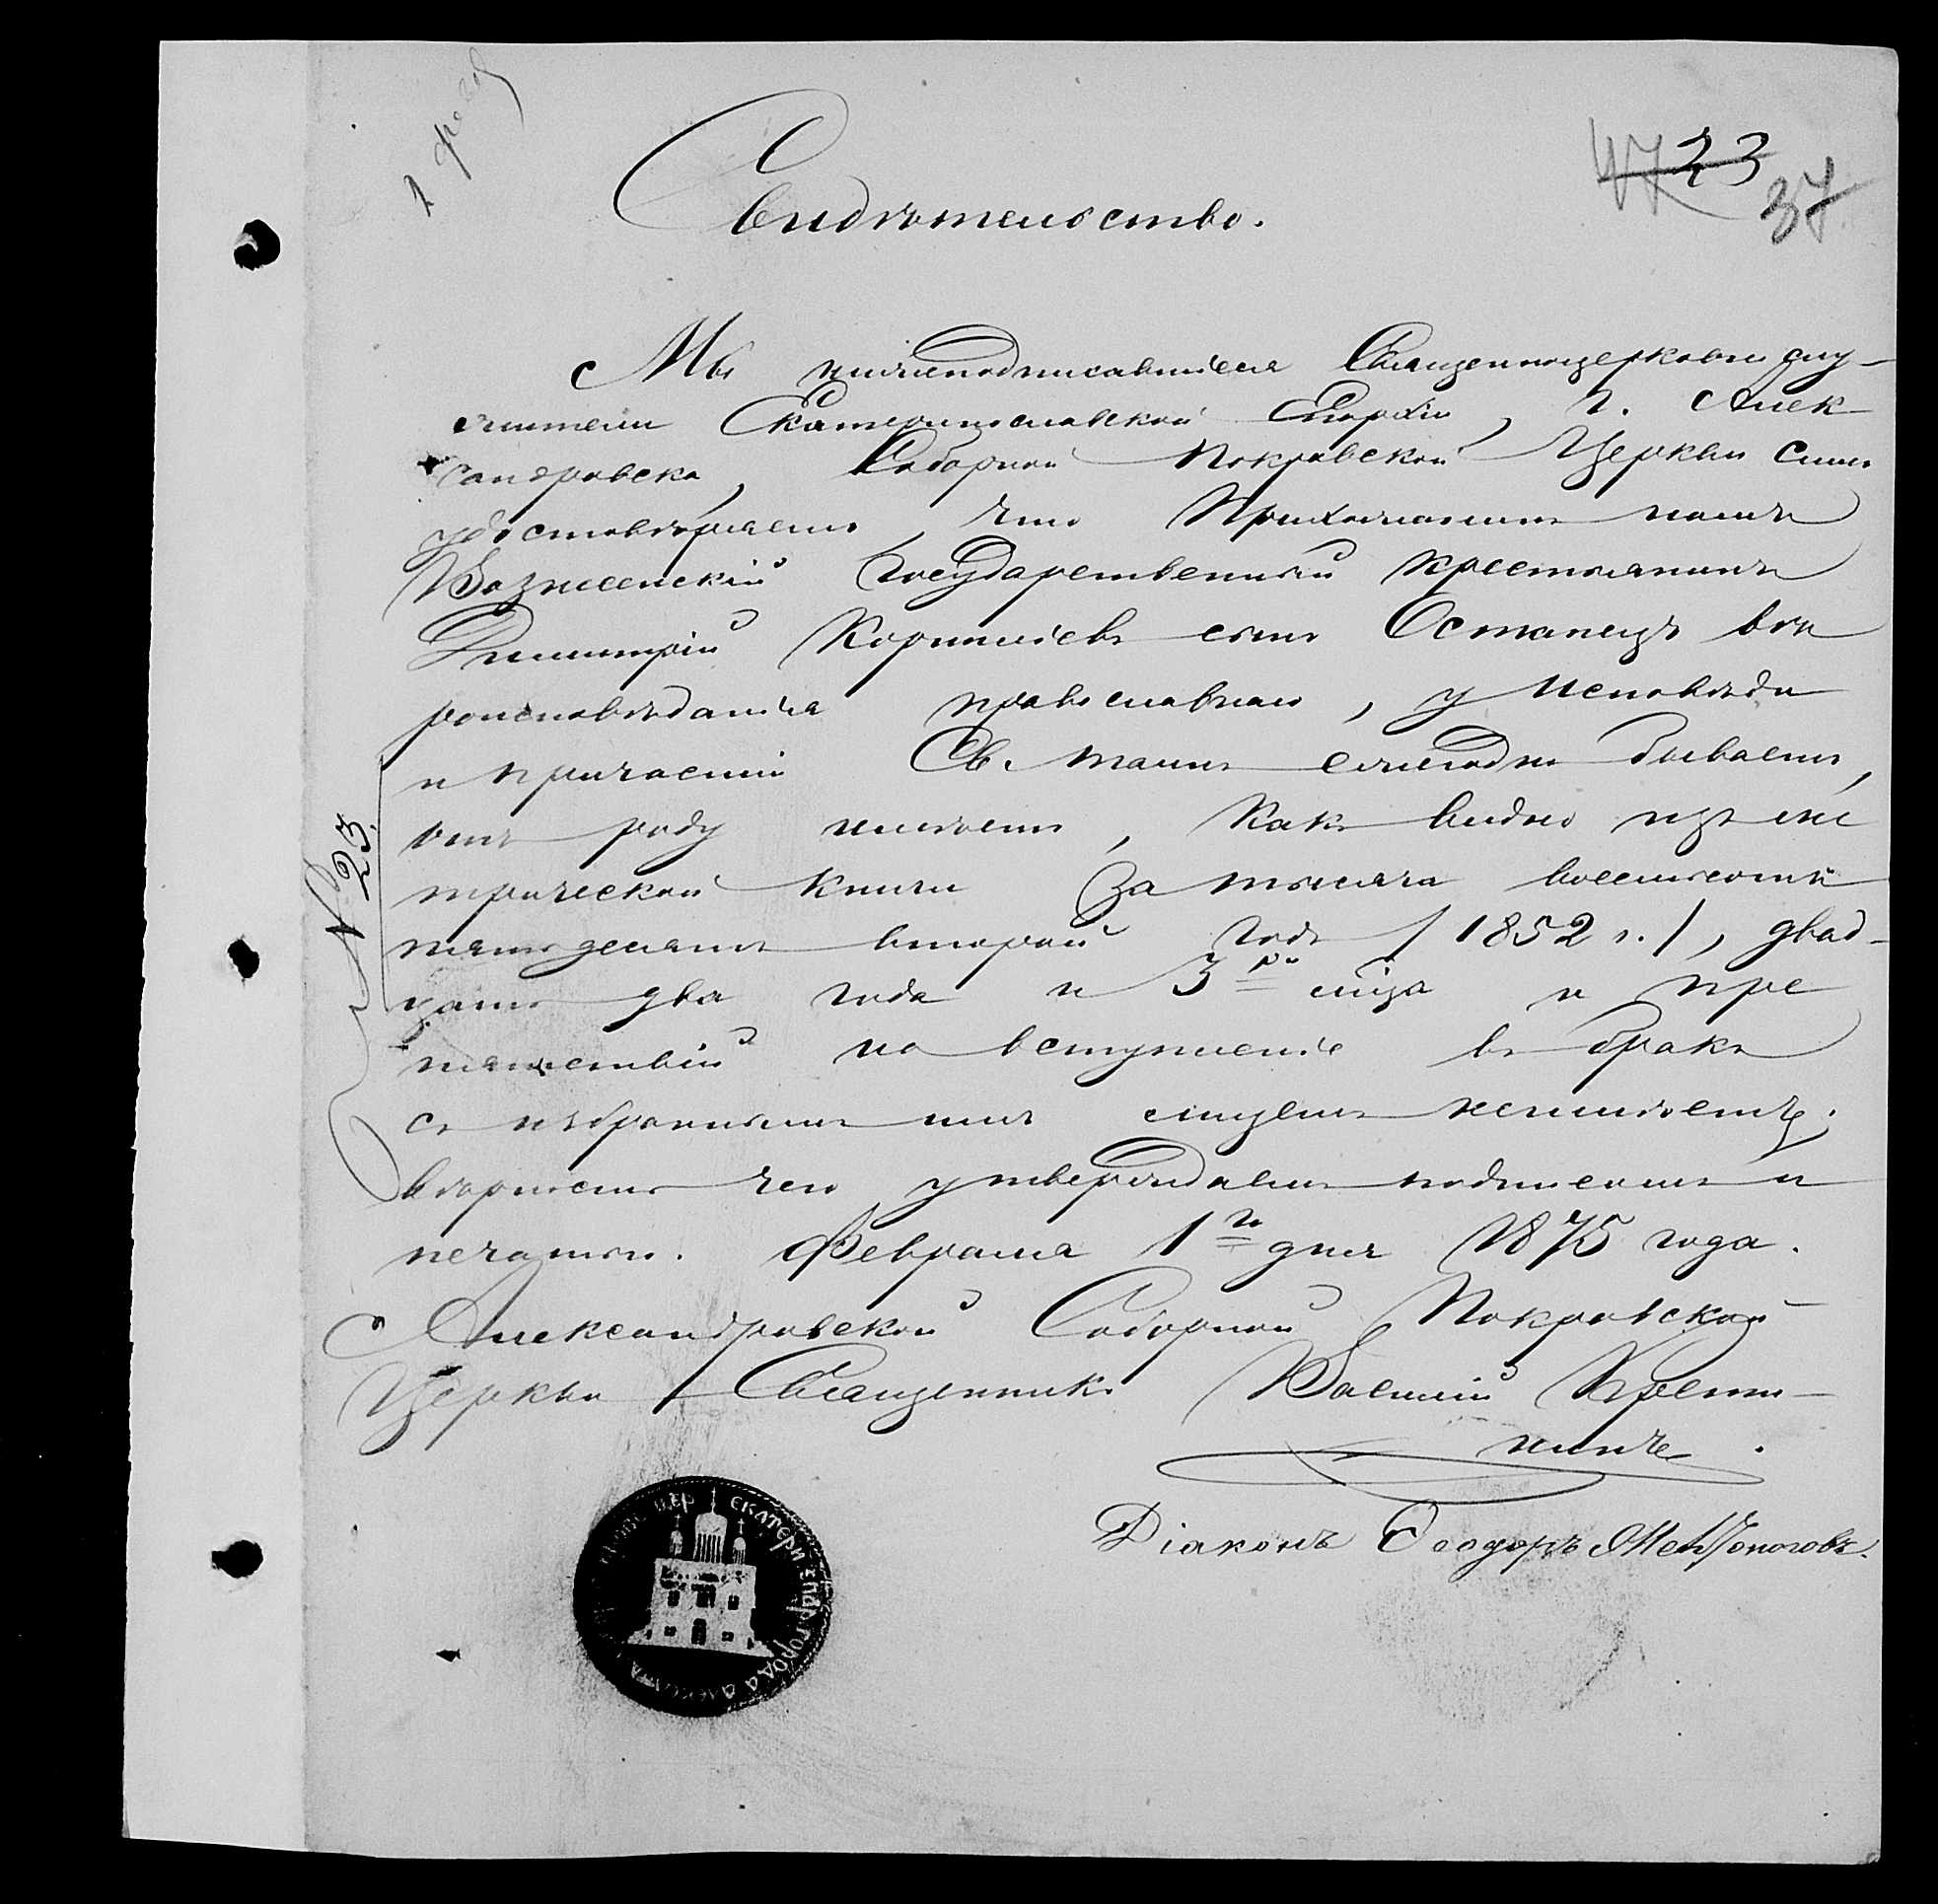 23
37
Свидѣтельство.
Мы нижеподписавшіеся Священноцерковнослу-
жители Екатеринославской Епархіи, г. Алек-
сандровска, Соборной Покровской Церкви симъ
удостовѣряемъ, что Прихожанинъ нашъ
Вознесенскій Государственный крестьянинъ
Димитрій Корниліевъ сынъ Останецъ вѣ
роисповѣданія православнаго, у Исповѣди
и причастія Св. таинъ ежегодно бываетъ,
отъ роду имѣетъ, какъ видно изъ ме
трической книги за тысяча восемьсотъ
пятьдесятъ второй годъ /1852 г./, двад-
цать два года и 3 рн мца и пре
пятствій на вступленіе въ бракъ
съ избранною имъ лицемъ неимѣетъ;
вѣрность чего утверждаемъ подписомъ и
печатью. Февраля 1го дня 1875 года.
Александровской Соборной Покровской
Церкви Священникъ Василій
Діаконъ Ѳеодоръ
N 23.
ЕКАТЕРИ ЕПАР ГОРОДА